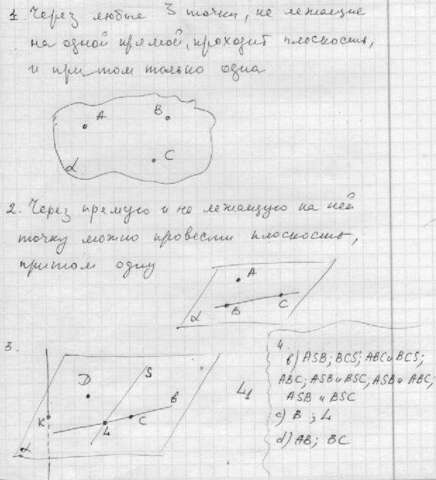 1. Через любые 3 точки, не лежащие
на одной прямой, проходит плоскость,
и притом только одна
A
B
C
α
2. Через прямую и не лежащую на ней
точку можно провести плоскость,
притом одну
A
B
C
α
3.
D
S
в
K
L
C
α
L1
4.
в) ASB; BCS; ABC и BCS;
ABC; ASB и BSC, ASB и ABC,
ASB и BSC
с) B ; L
d) AB; BC